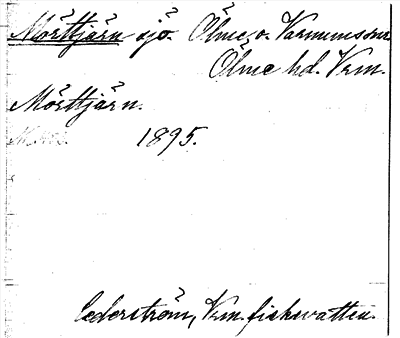 Mörttjärn sjö. Ölme o. Varnumssnr
Ölme hd. Vrm.
Mörttjärn.
1895.
Cederström, Vrm. fiskvatten.